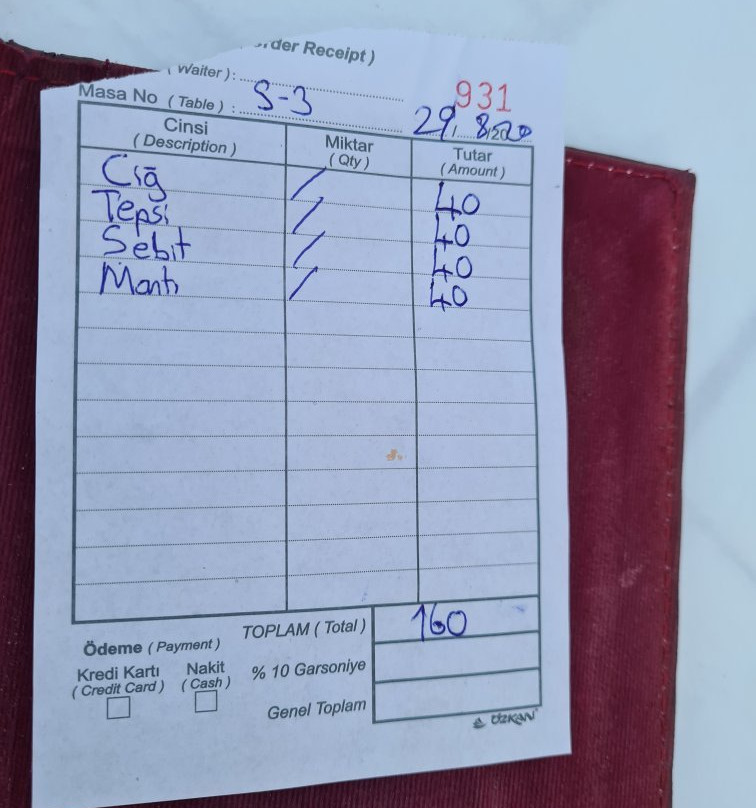 der Receipt )
( Waiter ) :
931
Masa No ( Table ) : S-3
29, 8,20
Cinsi
( Description )
Miktar
( Qty )
Tutar
( Amount )
Ciğ / 40
Tepsi / 40
Sebit / 40
Mantı / 40
TOPLAM ( Total ) 160
Ödeme ( Payment )
Kredi Kartı
( Credit Card )
Nakit
( Cash )
% 10 Garsoniye
Genel Toplam
ÖZKAN